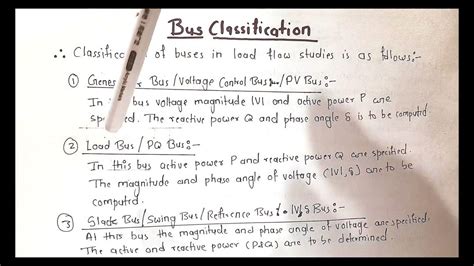 Bus Classification
∴ Classific of buses in load flow studies is as follows:-
① Gene r Bus/Voltage Control Bus/PV Bus:-
In bus voltage magnitude |V| and active power P are
sp ed. The reactive power Q and phase angle δ is to be computed
② Load Bus/PQ Bus:-
In this bus active power P and reactive power Q are specified.
The magnitude and phase angle of voltage (|V|,δ) are to be
computed.
③ Slack Bus/Swing Bus/Reference Bus/|V|δ Bus:-
At this bus the magnitude and phase angle of voltage are specified.
The active and reactive power (P&Q) are to be determined.